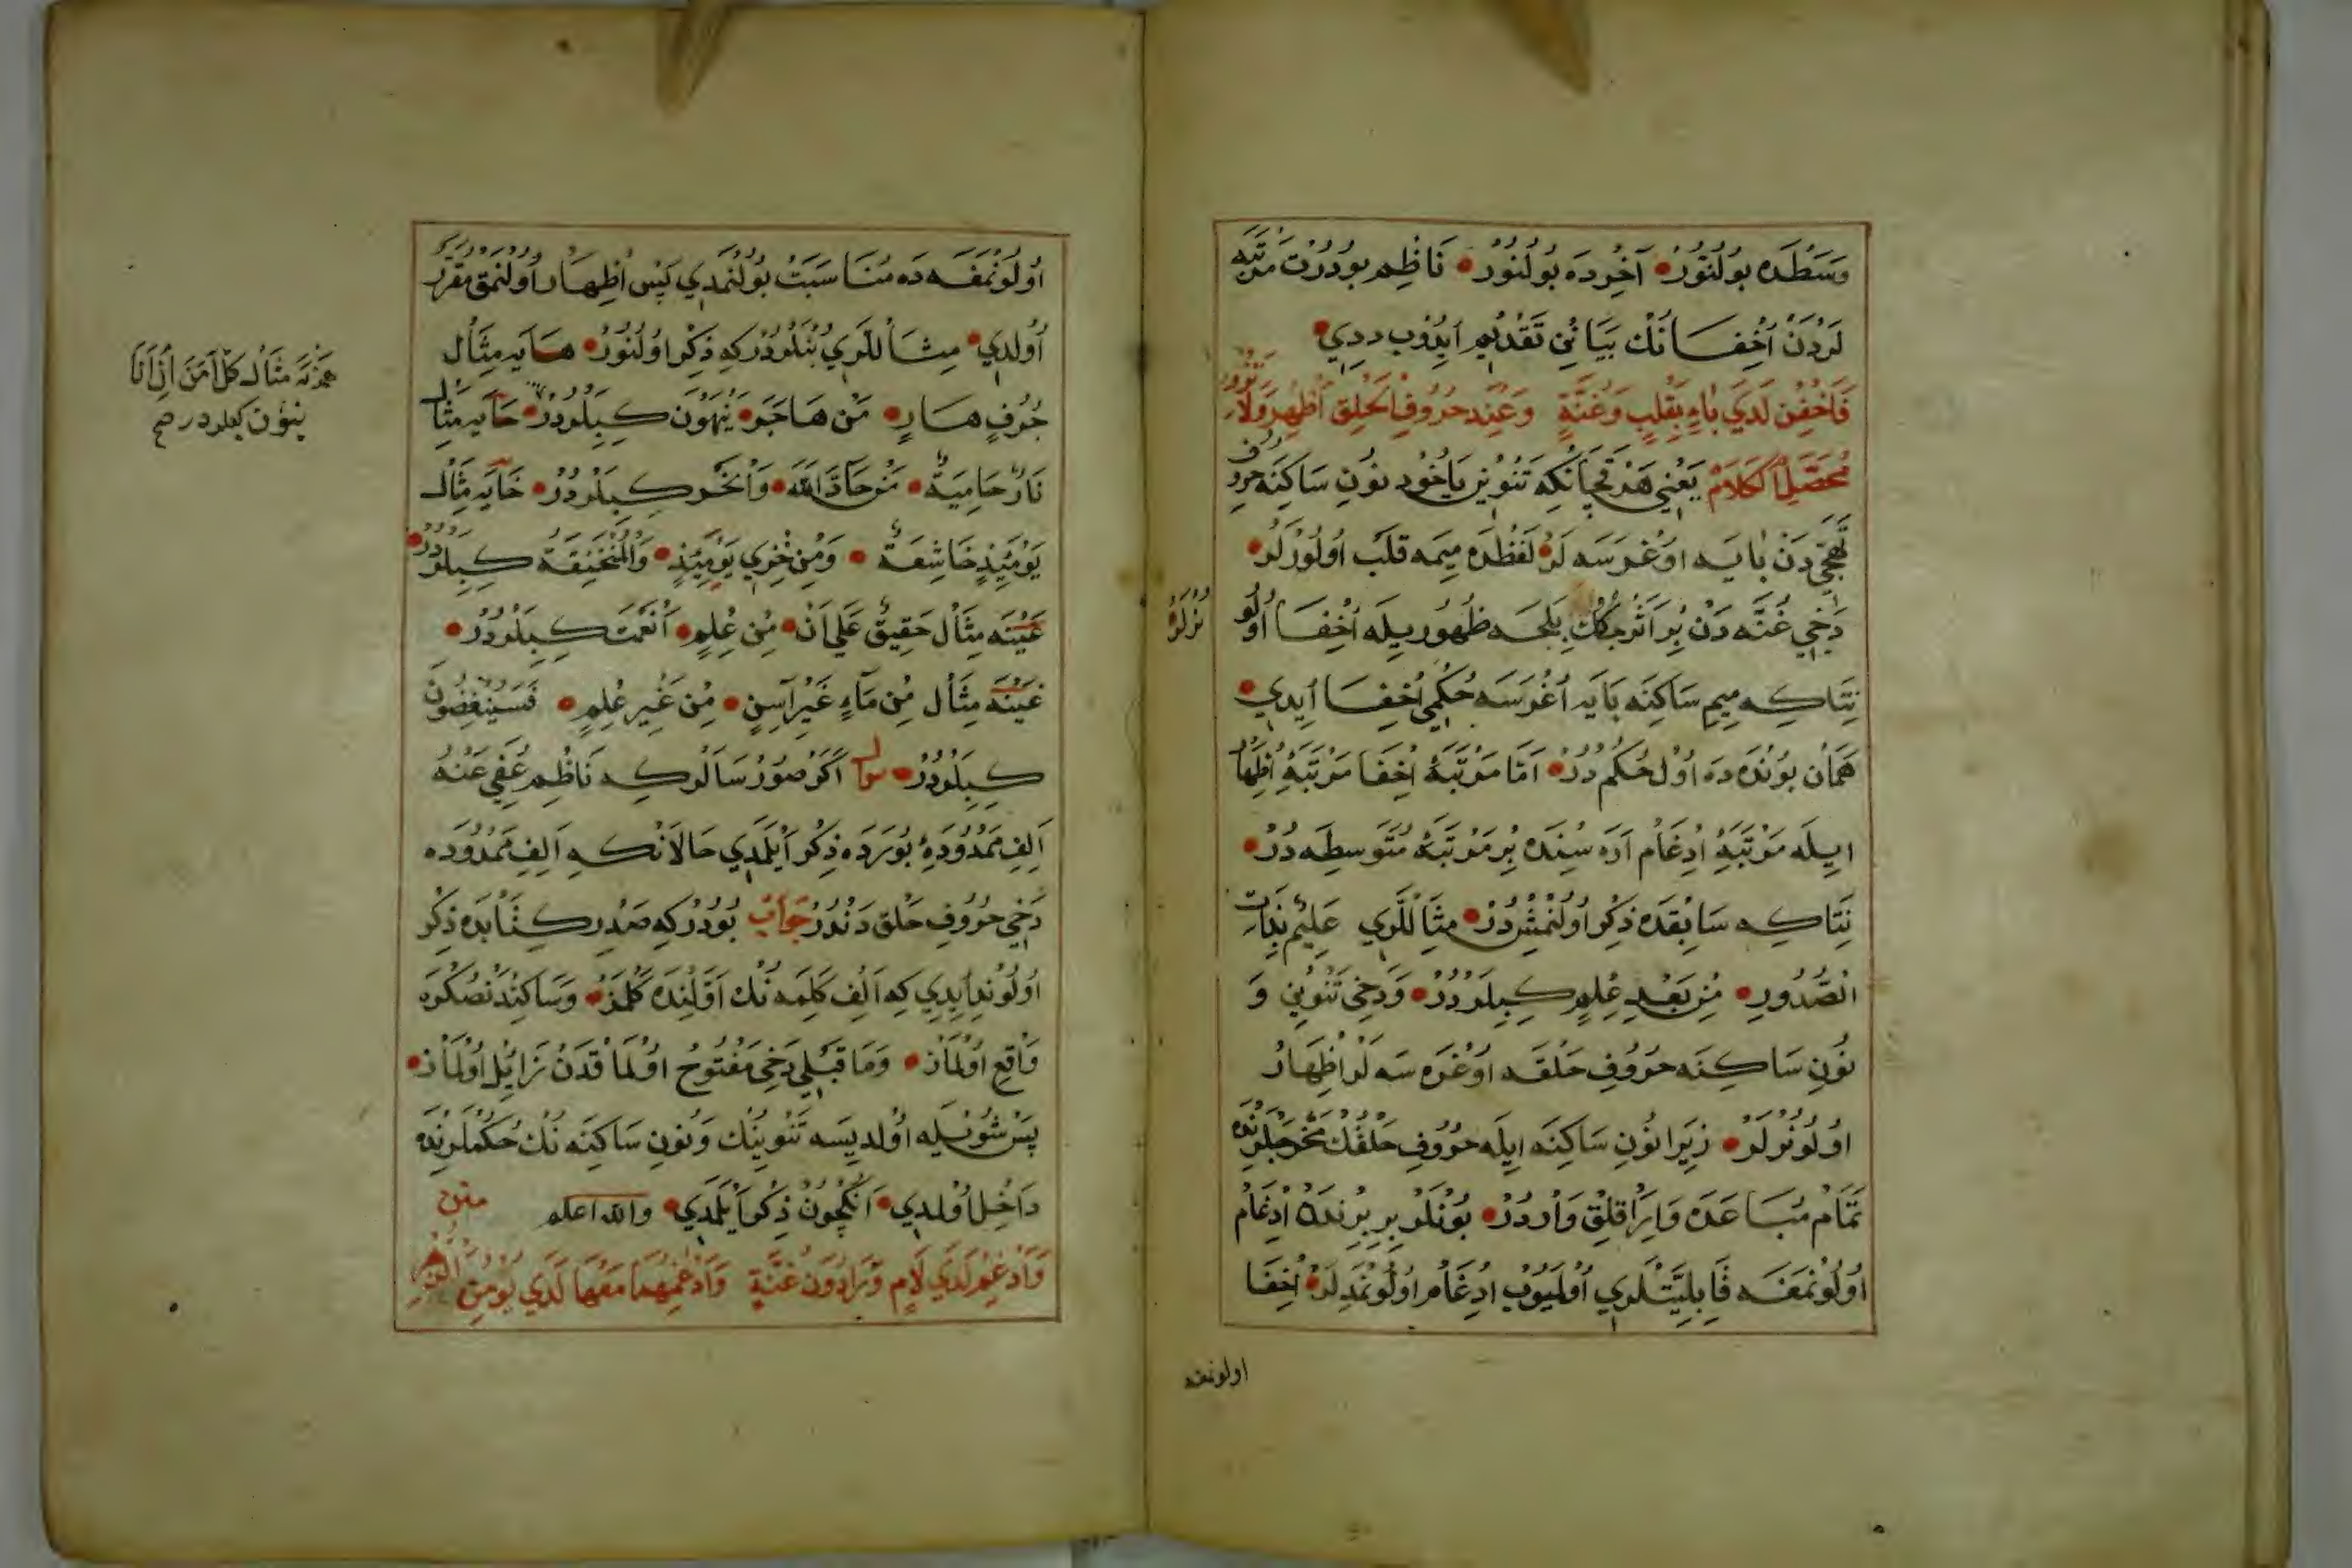 وَسَطْدَه بُولُنُورْ آخِرْدَه بُولُنُورْ نَاظِم بُودُرْت مَرْتَبَه
لَرْدَنْ اِخْفَانُكْ بَيَانِنْ تَقْدِيم اَيدُوب دِدِي
فَاَخْفِيَنْ لَدَي بَاءٍ بِقَلْبٍ وَغُنَّةٍ وَعِنْدَ حُرُوفِ الْحَلْقِ اَظْهِرْ وَلَا
مُحَصَّلِ كَلَامْ يَعْنِي هَرْ قَچَانْكِه تَنْوِين يَاخُود نُونِ سَاكِنَه حُرُوفِ
تَهَجِّي دَنْ بَايَه اوُغْرَسَه لَرْ لَفْظْدَه مِيمَه قَلْب اُولُورْلَرْ
دَخِي غُنَّه دَنْ بِرْ اَثَرْجِكِكْ بِلْجَه ظُهُورِيلَه اِخْفَا اُولُو
نُرْلَرْ
نِتَاكِه مِيمِ سَاكِنَه بَايَه اُغْرَسَه حُكْمِي اِخْفَا اِيدِي
هَمَانْ بُونْدَه دَه اُولْ حُكْمْ دُرْ اَمَّا مَرْتَبَهٔ اِخْفَا مَرْتَبَهٔ اِظْهَار
اِيلَه مَرْتَبَهٔ اِدْغَام اَرَه سِنْدَه بِرْ مَرْتَبَهٔ مُتَوَسِّطَه دُرْ
نِتَاكِه سَابِقْدَه ذِكْر اُولُنْمِشْ دُرْ مِثَالْلَرِي عَلِيمٌ بِذَاتِ
الصُّدُورِ مِنْ بَعْدِ عِلْمٍ كِبِيلَرْدُرْ وَدَخِي تَنْوِينْ وَ
نُونِ سَاكِنَه حُرُوفِ حَلْقَه اوُغْرَه سَه لَرْ اِظْهَارْ
اوُلُونُرْلَرْ زِيرَا نُونِ سَاكِنَه اِيلَه حُرُوفِ حَلْقُكْ مَخْرَجْلَرِنْدَه
تَمَامْ مُبَاعَدَه وَايرَاقْلِقْ وَارْدُرْ بُونْلَرْ بِرِ بِرِنْدَه اِدْغَام
اوُلُونْمَغَه قَابِلِيَّتْلَرِي اُولْمَيُوبْ اِدْغَامْ اُولُونْمَدِيلَرْ اِخْفَا
اولونمغه
اُولُونْمَغَه دَه مُنَاسَبَتْ بُولُنْمَدِي پَسْ اِظْهَار اُولُنْمَقْ مُقَرَّرْ
اُولْدِي مِثَالْلَرِي بُنْلَرْدُرْكِه ذِكْر اُولُنُورْ هَايَه مِثَال
جُرُفٍ هَارٍ مَنْ هَاجَرَ يَنْهَوْنَ كِبِيلَرْدُرْ حَايَه مِثَال
نَارٌ حَامِيَةٌ مَنْ حَادَّ اللهَ وَانْحَر كِبِيلَرْدُرْ خَايَه مِثَال
يَوْمَئِذٍ خَاشِعَةٌ وَمِنْ خِزْيِ يَوْمَئِذٍ وَالْمُنْخَنِقَةُ كِبِيلَرْدُرْ
عَيْنَه مِثَال حَقِيقٌ عَلَي اَنْ مِنْ عِلْمٍ اَنْعَمْتَ كِبِيلَرْدُرْ
غَيْنَه مِثَال مِنْ مَاءٍ غَيْرِ آسِنٍ مِنْ غَيْرِ عِلْمٍ فَسَيُنْغِضُونَ
كِبِيلَرْدُرْ سوال اَكَرْ صُورْسَالَرْكِه نَاظِم عُفِيَ عَنْهُ
اَلِفِ مَمْدُودَهٔ بُورَدَه ذِكْر اَيْلَمَدِي حَالَانْكِه اَلِفِ مَمْدُودَه
دَخِي حُرُوفِ حَلْق دَنْدُرْ جَوَابْ بُودُرْكِه صَدْرِ كِتَابْدَه ذِكْر
اُولُونْدِايدِي كِه اَلِف كَلِمَه نُكْ اَوَّلِنْدَه كَلْمَزْ وَسَاكِنْدَنْصُكْرَه
وَاقِع اوُلْمَازْ وَمَا قَبْلِي دَخِي مَفْتُوحْ اوُلْمَاقْدَنْ زَائِل اُولْمَازْ
پَسْ شُويْلَه اُولْدِيسَه تَنْوِينُكْ وَنُونِ سَاكِنَه نُكْ حُكْمْلَرِنْدَه
دَاخِل اُولْمَدِي اَنُكْچُونْ ذِكْر اَيْلَمَدِي والله اعلم متن
وَاَدْغِمْ لَدَي لَامٍ وَرَا دُونَ غُنَّةٍ وَاَدْغِمْهُمَا مَعْهَا لَدَي يُومِنُ
هَمْزَيَه مِثَال كُلٌّ آمَنَ اِنْ اَنَا
يَنْئَوْنَ كبيلردر صح